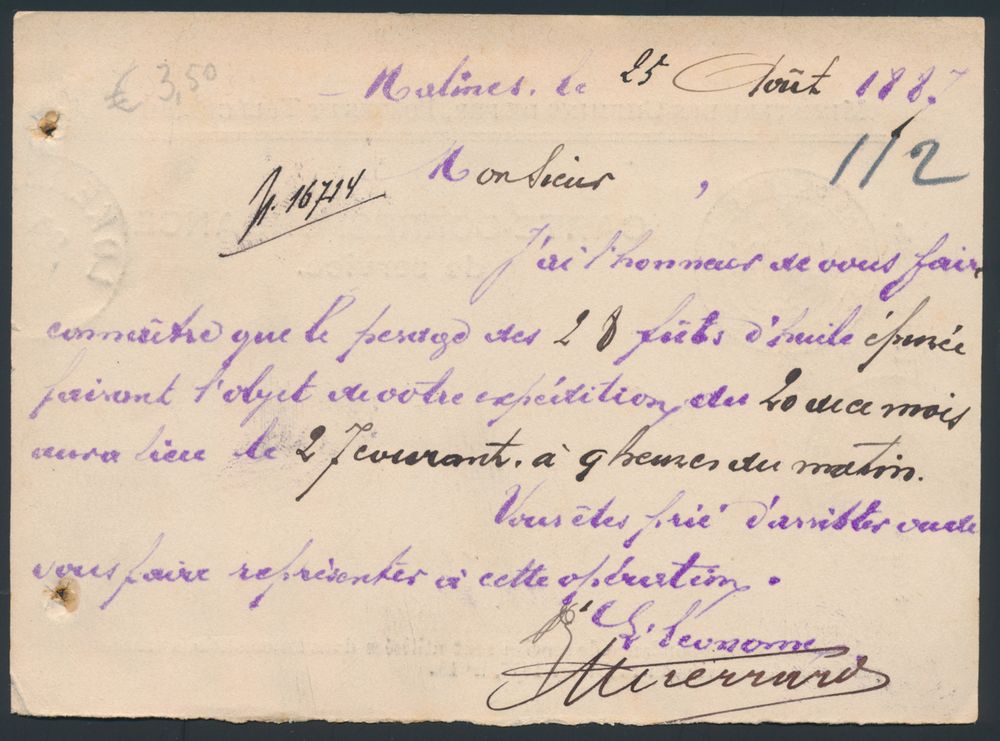 € 3,50
Malines, le 25 Août 1887
112
N. 16724
Monsieur,
J'ai l'honneur de vous faire
connaître que le pesage des 28 fûts d'huile épurée
faisant l'objet de votre expédition du 20 de ce mois
aura lieu le 27 courant, à 9 heures du matin.
Vous êtes prié d'assister ou de
vous faire représenter à cette opération.
L'économe